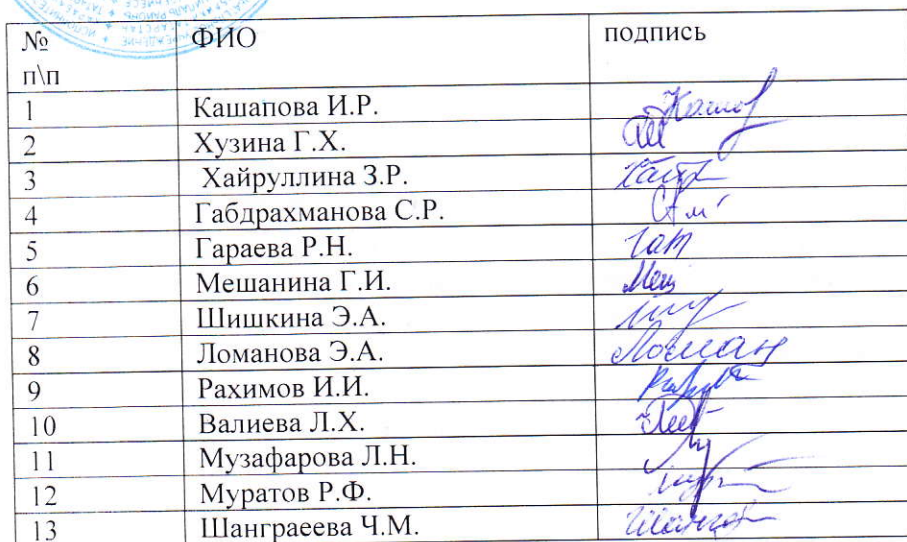 № ФИО подпись
п\п
1 Кашапова И.Р.
2 Хузина Г.Х.
3 Хайруллина З.Р.
4 Габдрахманова С.Р.
5 Гараева Р.Н.
6 Мешанина Г.И.
7 Шишкина Э.А.
8 Ломанова Э.А.
9 Рахимов И.И.
10 Валиева Л.Х.
11 Музафарова Л.Н.
12 Муратов Р.Ф.
13 Шанграеева Ч.М.